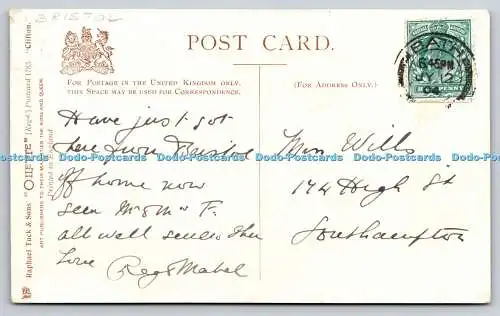 BRISTOL
POST CARD.
FOR POSTAGE IN THE UNITED KINGDOM ONLY,
THIS SPACE MAY BE USED FOR CORRESPONDENCE.
(FOR ADDRESS ONLY.)
Raphael Tuck & Sons' "OILETTE" [Regd.] Postcard 1785 "Clifton.
ART PUBLISHERS TO THEIR MAJESTIES THE KING AND QUEEN.
Printed in England
BATH
6.45PM
JY 12
04
HALFPENNY
Have just got
here from Bristol
off home now
seen Mr & Mrs F.
all well sends their
Love
Reg & Mabel
Miss Wills
174 High St
Southampton
Dodo-Postcards Dodo-Postcards Dodo-Postcards Dodo-Postcards Dodo-Postcards Dodo-Postcards